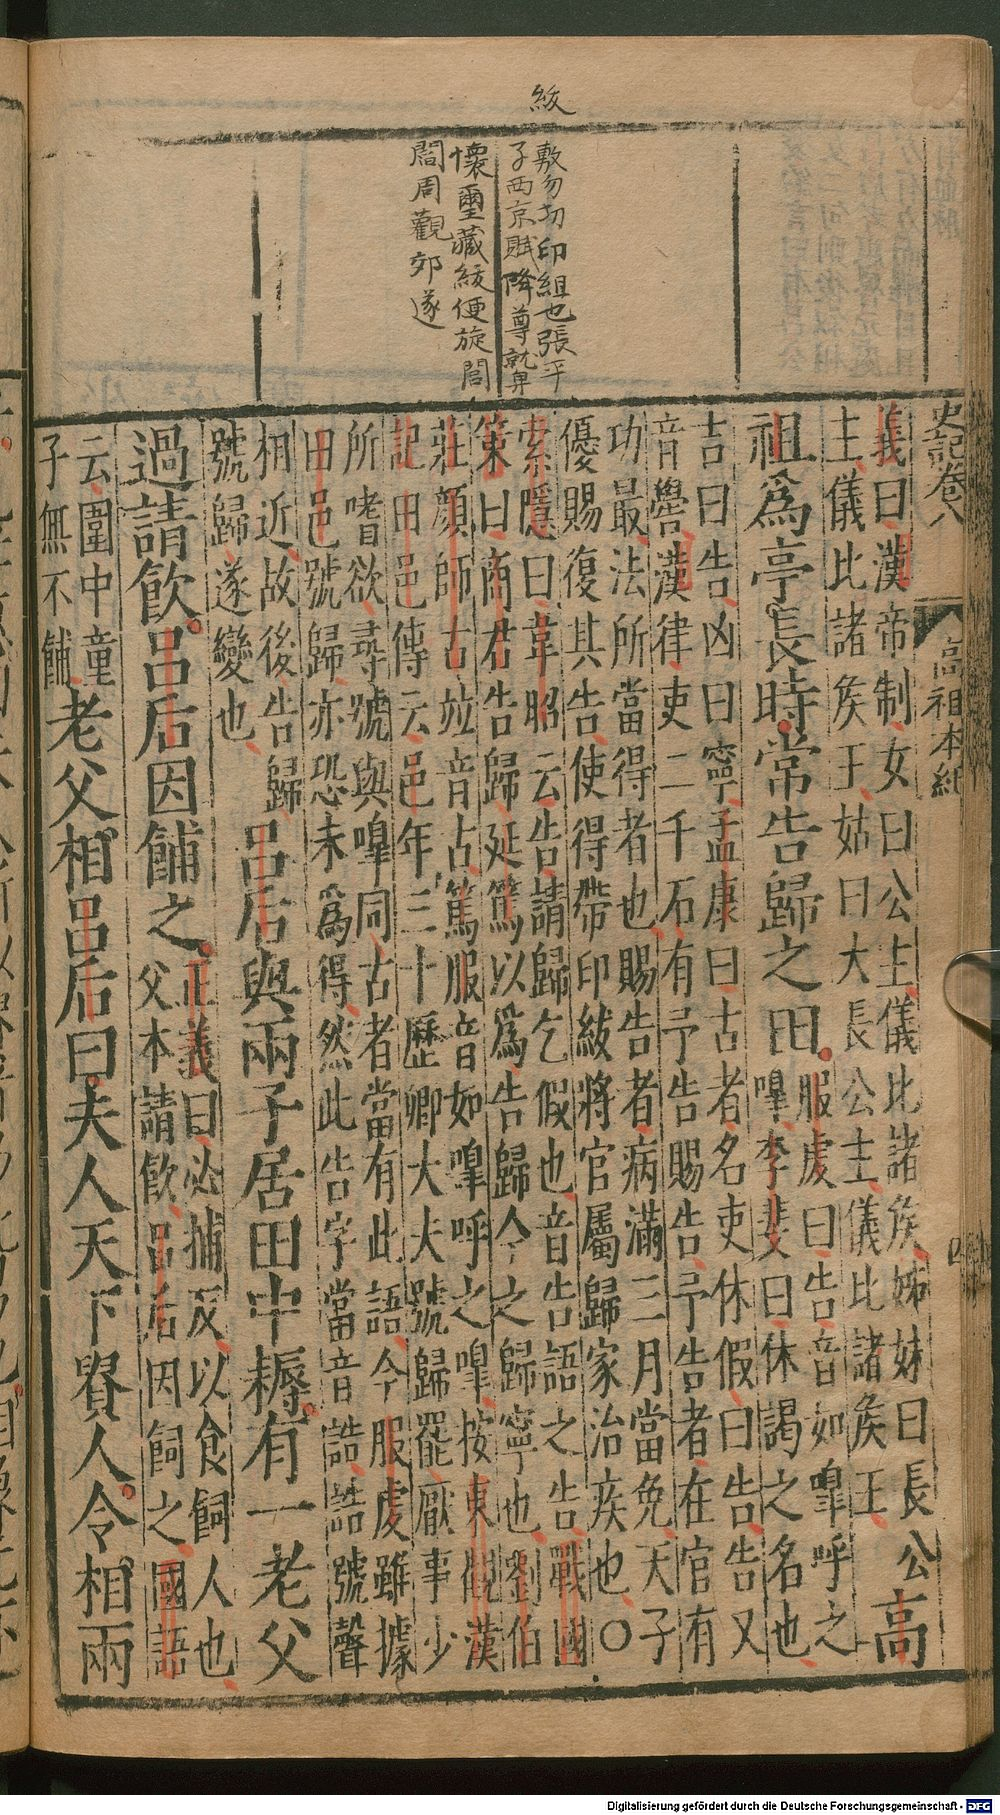 紱
敷勿切印組也張平
子西京賦降尊就卑
懷璽藏紱便旋閭
閻周觀郊遂
史記卷八
高祖本紀
四
義曰漢帝制女曰公主儀比諸侯姊妹曰長公
主儀比諸侯王姑曰大長公主儀比諸侯王
高
祖爲亭長時常告歸之田
服虔曰告音如嘷呼之
嘷李斐曰休謁之名也
吉曰告凶曰寧孟康曰古者名吏休假曰告告又
音嚳漢律吏二千石有予告賜告予告者在官有
功最法所當得者也賜告者病滿三月當免天子
優賜復其告使得帶印紱將官屬歸家治疾也〇
索隱曰韋昭云告請歸乞假也音告語之告戰國
策曰商君告歸延篤以爲告歸今之歸寧也劉伯
莊顏師古並音古篤服音如嘷呼之嘷按東觀漢
記田邑傳云邑年三十歷卿大夫號歸罷厭事少
所嗜欲尋號與嘷同古者當有此語今服虔雖據
田邑號歸亦恐未爲得然此告字當音誥誥號聲
相近故後告歸
號歸遂變也
呂后與兩子居田中耨有一老父
過請飲呂后因餔之
正義曰必捕反以食飼人也
父本請飲呂后因飼之國語
云國中童
子無不餔
老父相呂后曰夫人天下貴人令相兩
Digitalisierung gefördert durch die Deutsche Forschungsgemeinschaft - DFG